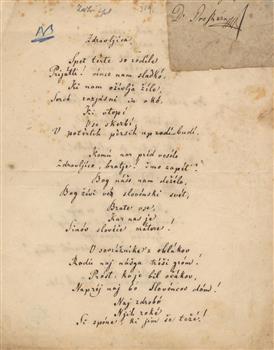 Zdravljica.
Spet terte so rodile
Prijatli vince nam sladkó,
Ki nam oživlja žile,
Serce razjásni in okó,
Ki utopí
Vse skerbí,
V potèrtih pèrsih up rodi
Komú nar préd veselo
Zdravljico, bratje! čmo zapét'?
Bog náši nam deželo,
Bog živi ves slovénski svét,
Brate vse,
Kar nas je
Sinóv slovéče mátere!
V sovražnike z oblákov
Rodú naj nášga trési gróm!
Prost, ko je bil očákov,
Naprèj naj bo Slovéncov dóm!
Naj zdrobé
Njih roké
Si spóne, ki jim še težé!